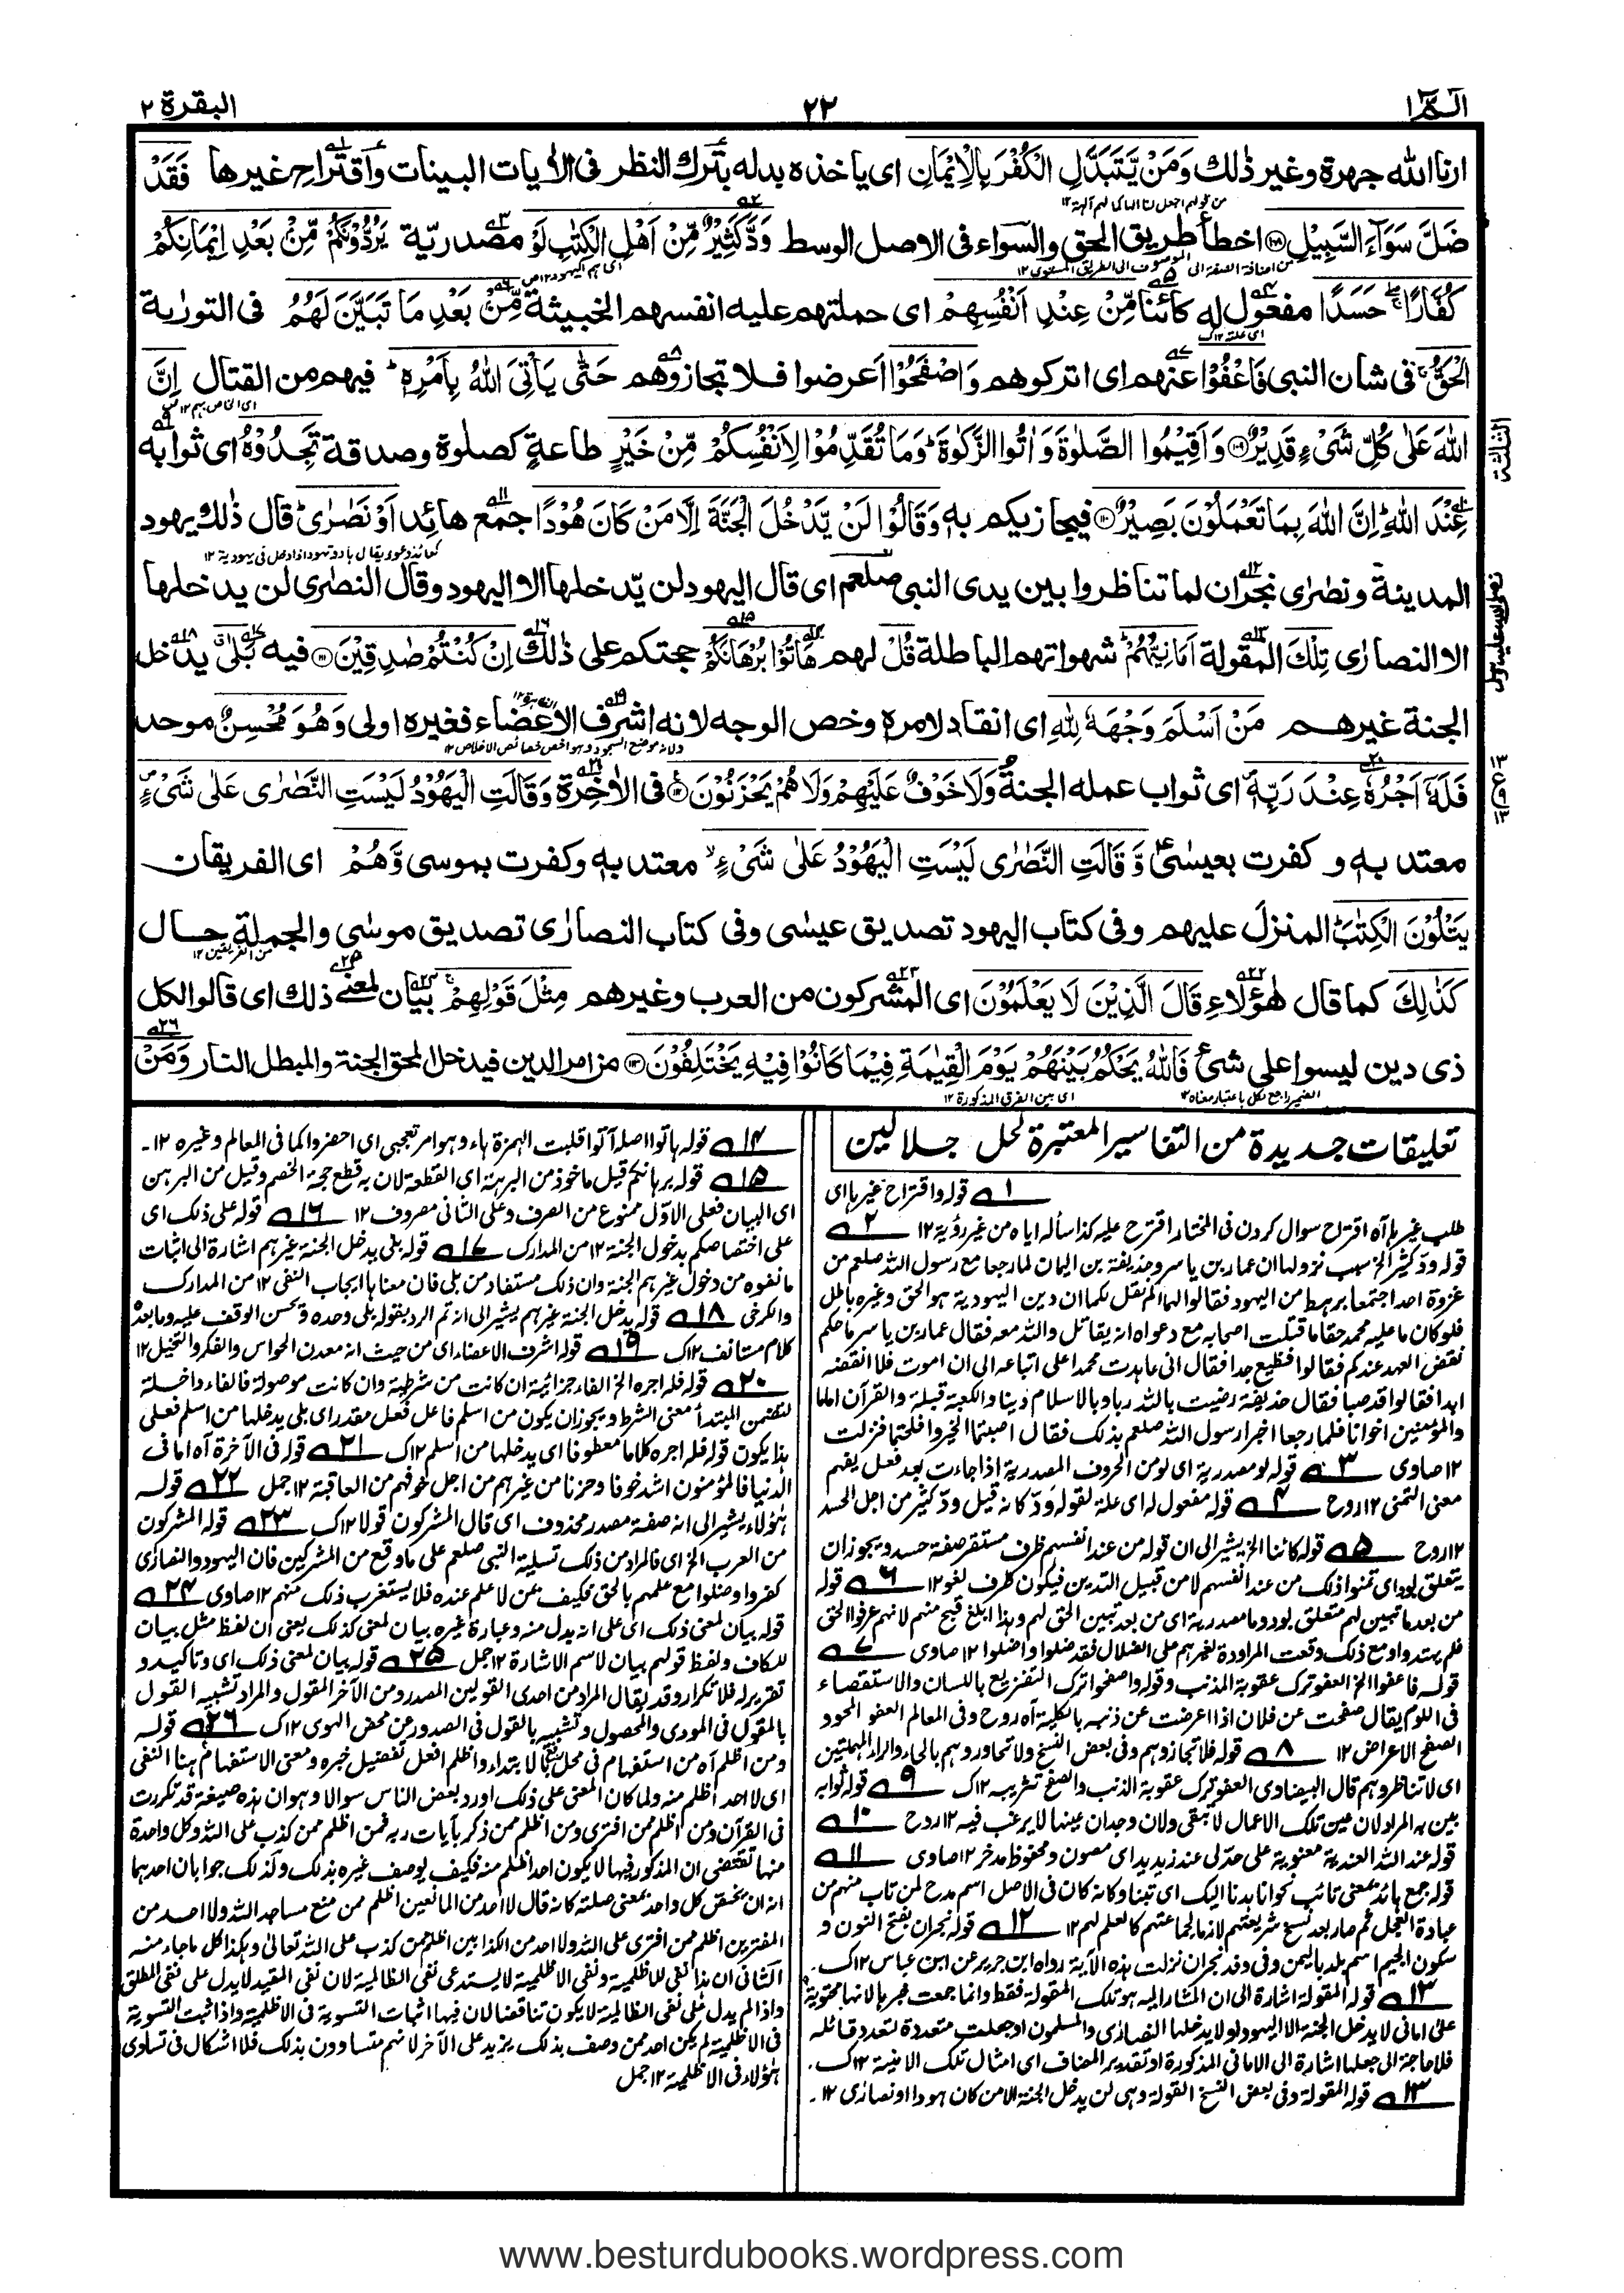 الٓمّٓ ١
٢٢
البقرة ٢
ارنا الله جهرة وغير ذٰلك وَمَنْ يَّتَبَدَّلِ الْكُفْرَ بِالْاِيْمَانِ اى ياخذه بدله بترك النظر فى الاٰيات البينات واقتراح غيرها فَقَدْ
ضَلَّ سَوَآءَ السَّبِيْلِ ١٠٨ اخطأ طريق الحق والسواء فى الاصل الوسط وَدَّ كَثِيْرٌ مِّنْ اَهْلِ الْكِتٰبِ لَوْ مصدرية يَرُدُّوْنَكُمْ مِّنْۢ بَعْدِ اِيْمَانِكُمْ
كُفَّارًا حَسَدًا مفعول له كائنا مِّنْ عِنْدِ اَنْفُسِهِمْ اى حملتهم عليه انفسهم الخبيثة مِّنْۢ بَعْدِ مَا تَبَيَّنَ لَهُمُ فى التورٰية
الْحَقُّ فى شان النبى فَاعْفُوْا عنهم اى اتركوهم وَاصْفَحُوْا اعرضوا فلا تجازوهم حَتّٰى يَاْتِىَ اللّٰهُ بِاَمْرِهٖ فيهم من القتال اِنَّ
اللّٰهَ عَلٰى كُلِّ شَىْءٍ قَدِيْرٌ ١٠٩ وَاَقِيْمُوا الصَّلٰوةَ وَاٰتُوا الزَّكٰوةَ وَمَا تُقَدِّمُوْا لِاَنْفُسِكُمْ مِّنْ خَيْرٍ طاعةٍ كصلوة وصدقة تَجِدُوْهُ اى ثوابه
عِنْدَ اللّٰهِ اِنَّ اللّٰهَ بِمَا تَعْمَلُوْنَ بَصِيْرٌ ١١٠ فيجازيكم به وَقَالُوْا لَنْ يَّدْخُلَ الْجَنَّةَ اِلَّا مَنْ كَانَ هُوْدًا جمع هائد اَوْ نَصٰرٰى قال ذٰلك يهود
المدينة ونصٰرٰى نجران لما تناظروا بين يدى النبى صلعم اى قال اليهود لن يّدخلها الا اليهود وقال النصٰرى لن يدخلها
الا النصارٰى تِلْكَ المقولة اَمَانِيُّهُمْ شهواتهم الباطلة قُلْ لهم هَاتُوْا بُرْهَانَكُمْ حجتكم على ذٰلك اِنْ كُنْتُمْ صٰدِقِيْنَ ١١١ فيه بَلٰى يدخل
الجنة غيرهم مَنْ اَسْلَمَ وَجْهَهٗ لِلّٰهِ اى انقاد لامره وخص الوجه لانه اشرف الاعضاء فغيره اولى وَهُوَ مُحْسِنٌ موحد
فَلَهٗٓ اَجْرُهٗ عِنْدَ رَبِّهٖ اى ثواب عمله الجنة وَلَا خَوْفٌ عَلَيْهِمْ وَلَا هُمْ يَحْزَنُوْنَ ١١٢ فى الاٰخرة وَقَالَتِ الْيَهُوْدُ لَيْسَتِ النَّصٰرٰى عَلٰى شَىْءٍ
معتد به و كفرت بعيسٰى وَّقَالَتِ النَّصٰرٰى لَيْسَتِ الْيَهُوْدُ عَلٰى شَىْءٍ معتد به وكفرت بموسى وَّهُمْ اى الفريقان
يَتْلُوْنَ الْكِتٰبَ المنزل عليهم وفى كتاب اليهود تصديق عيسٰى وفى كتاب النصارٰى تصديق موسٰى والجملة حال
كَذٰلِكَ كما قال هٰؤلاء قَالَ الَّذِيْنَ لَا يَعْلَمُوْنَ اى المشركون من العرب وغيرهم مِثْلَ قَوْلِهِمْ بيان لمعنى ذلك اى قالوا لكل
ذى دين ليسوا على شئ فَاللّٰهُ يَحْكُمُ بَيْنَهُمْ يَوْمَ الْقِيٰمَةِ فِيْمَا كَانُوْا فِيْهِ يَخْتَلِفُوْنَ ١١٣ من امر الدين فيدخل المحق الجنة والمبطل النار وَمَنْ
تعليقات جديدة من التفاسير المعتبرة لحل جلالين
١ قوله واقتراح غيرها اى
طلب غيرها آه اقتراح سوال كردن فى المختار اقترح عليه كذا سأله اياه من غير رؤية ١٢ ٢
قوله ود كثير الخ سبب نزولها ان عمار بن ياسر وحذيفة بن اليمان لما رجعا مع رسول الله صلعم من
غزوة احد اجتمعا برهط من اليهود فقالوا لهما الم نقل لكما ان دين اليهودية هو الحق وغيره باطل
فلو كان ما عليه محمد حقا ما قتلت اصحابه مع دعواه انه يقاتل والله معه فقال عمار بن ياسر ما حكم
نقض العهد عندكم فقالوا فظيع جدا فقال انى عاهدت محمدا على اتباعه الى ان اموت فلا انقضه
ابدا فقالوا قد صبا فقال حذيفة رضيت بالله ربا وبالاسلام دينا والكعبة قبلة والقرآن اماما
والمؤمنين اخوانا فلما رجعا اخبرا رسول الله صلعم بذلك فقال اصبتما الخير وافلحتما فنزلت
١٢ صاوى ٣ قوله لو مصدرية اى لو من الحروف المصدرية اذا جاءت بعد فعل يفهم
معنى التمنى ١٢ روح ٤ قوله مفعول له اى علة لقوله ود كانه قيل ود كثير من اجل الحسد
١٢ روح ٥ قوله كائنا الخ يشير الى ان قوله من عند انفسهم ظرف مستقر صفة حسد ويجوز ان
يتعلق بود اى تمنوا ذلك من عند انفسهم لا من قبيل التدين فيكون ظرف لغو ١٢ ٦ قوله
من بعد ما تبين لهم متعلق بود وما مصدرية اى من بعد تبين الحق لهم وهذا ابلغ قبح منهم لانهم عرفوا الحق
فلم يهتدوا ومع ذلك وقعت المراودة لغيرهم على الضلال فقد ضلوا واضلوا ١٢ صاوى ٧
قوله فاعفوا الخ العفو ترك عقوبة المذنب وقوله واصفحوا ترك التقريع باللسان والاستقصاء
فى اللوم يقال صفحت عن فلان اذا اعرضت عن ذنبه بالكلية آه روح وفى المعالم العفو المحو و
الصفح الاعراض ١٢ ٨ قوله فلا تجازوهم وفى بعض النسخ ولا تحاوروهم بالحاء والراء المهملتين
اى لا تناظروهم قال البيضاوى العفو ترك عقوبة الذنب والصفح تثريبه ١٢ك ٩ قوله ثوابه
بين به المراد لان عين تلك الاعمال لا تبقى ولان وجدان عينها لا يرغب فيه ١٢ روح ١٠
قوله عند الله العندية معنوية على حد لى عند زيد يد اى مصون ومحفوظ مدخر ١٢ صاوى ١١
قوله جمع هائد بمعنى تائب كحوانا هدنا اليك اى تبنا وكانه كان فى الاصل اسم مدح لمن تاب منهم من
عبادة العجل ثم صار بعد نسخ شريعتهم لازما لجماعتهم كالعلم لهم ١٢ ١٢ قوله نجران بفتح النون و
سكون الجيم اسم بلد باليمن وفى وفد نجران نزلت هذه الآية رواه ابن جرير عن ابن عباس ١٢ك
١٣ قوله المقولة اشارة الى ان المشار اليه هو تلك المقولة فقط وانما جمعت خبرها لانها محتوية
على امانى لا يدخل الجنة الا اليهود ولا يدخلها النصارٰى والمسلمون او جعلت متعددة لتعدد قائله
فلا حاجة الى جعلها اشارة الى الامانى المذكورة او تقدير المضاف اى امثال تلك الامنية ١٢ك
١٣ قوله المقولة وفى بعض النسخ القولة وهى لن يدخل الجنة الا من كان هودا او نصارٰى ١٢
١٤ قوله هاتوا اصله آتوا قلبت الهمزة هاء وهو امر تعجيبى اى احضروا كما فى المعالم وغيره ١٢
١٥ قوله برهانكم قيل ماخوذ من البرهة اى القطعة لان به قطع حجة الخصم وقيل من البرهن
اى البيان فعلى الاوّل ممنوع من الصرف وعلى الثانى مصروف ١٢ ١٦ قوله على ذلك اى
على اختصاصكم بدخول الجنة ١٢ من المدارك ١٧ قوله بلى يدخل الجنة غيرهم اشارة الى اثبات
ما نفوه من دخول غيرهم الجنة وان ذلك مستفاد من بلى فان معناها ايجاب النفى ١٢ من المدارك
والكرخى ١٨ قوله يدخل الجنة غيرهم يشير الى انه تم الرد بقوله بلى وحده ويحسن الوقف عليه وما بعده
كلام مستانف ١٢ك ١٩ قوله اشرف الاعضاء اى من حيث انه معدن الحواس والفكر والتخيل ١٢
٢٠ قوله فله اجره الخ الفاء جزائية ان كانت من شرطية وان كانت موصولة فالفاء داخلة
لتضمن المبتدأ معنى الشرط ويجوز ان يكون من اسلم فاعل فعل مقدر اى بلى يدخلها من اسلم فعلى
هذا يكون قوله فله اجره كلاما معطوفا اى يدخلها من اسلم ١٢ك ٢١ قوله فى الآخرة آه اما فى
الدنيا فالمؤمنون اشد خوفا وحزنا من غيرهم من اجل خوفهم من العاقبة ١٢ جمل ٢٢ قوله
هٰؤلاء يشير الى انه صفة مصدر محذوف اى قال المشركون قولا ١٢ك ٢٣ قوله المشركون
من العرب الخ اى فالمراد من ذلك تسلية النبى صلعم على ما وقع من المشركين فان اليهود والنصارٰى
كفروا وضلوا مع علمهم بالحق فكيف بمن لا علم عنده فلا يستغرب ذلك منهم ١٢ صاوى ٢٤
قوله بيان لمعنى ذلك اى على انه بدل منه وعبارة غيره بيان لمعنى كذلك يعنى ان لفظ مثل بيان
للكاف ولفظ قولهم بيان لاسم الاشارة ١٢ جمل ٢٥ قوله بيان لمعنى ذلك اى وتاكيد و
تقرير له فلا تكرار وقد يقال المراد من احدى القولين المصدر ومن الآخر المقول والمراد تشبيه القول
بالمقول فى المودى والمحصول وتشبيه بالقول فى الصدور عن محض الهوى ١٢ك ٢٦ قوله
ومن اظلم آه من استفهام فى محل رفع بالابتداء واظلم افعل تفضيل خبره ومعنى الاستفهام هنا النفى
اى لا احد اظلم منه ولما كان المعنى على ذلك اورد بعض الناس سوالا وهو ان هذه صيغة قد تكررت
فى القرآن ومن اظلم ممن افترى ومن اظلم ممن ذكر بآيات ربه فمن اظلم ممن كذب على الله وكل واحدة
منها تقتضى ان المذكور فيها لا يكون احد اظلم منه فكيف يوصف غيره بذلك وكذلك جوابان احدهما
انه ان يخص كل واحد بمعنى صلته كانه قال لا احد من المانعين اظلم ممن منع مساجد الله ولا احد من
المفترين اظلم ممن افترى على الله ولا احد من الكذابين اظلم ممن كذب على الله تعالى وهكذا كل ما جاء منه
الثانى ان هذا نفى للاظلمية ونفى الاظلمية لا يستدعى نفى الظالمية لان نفى المقيد لا يدل على نفى المطلق
واذا لم يدل على نفى الظالمية لا يكون تناقضا لان فيها اثبات التسوية فى الاظلمية واذا ثبت التسوية
فى الاظلمية لم يكن احد ممن وصف بذلك يزيد على الآخر لانهم متساوون بذلك فلا اشكال فى تساوى
هٰؤلاء فى الاظلمية ١٢ جمل
www.besturdubooks.wordpress.com